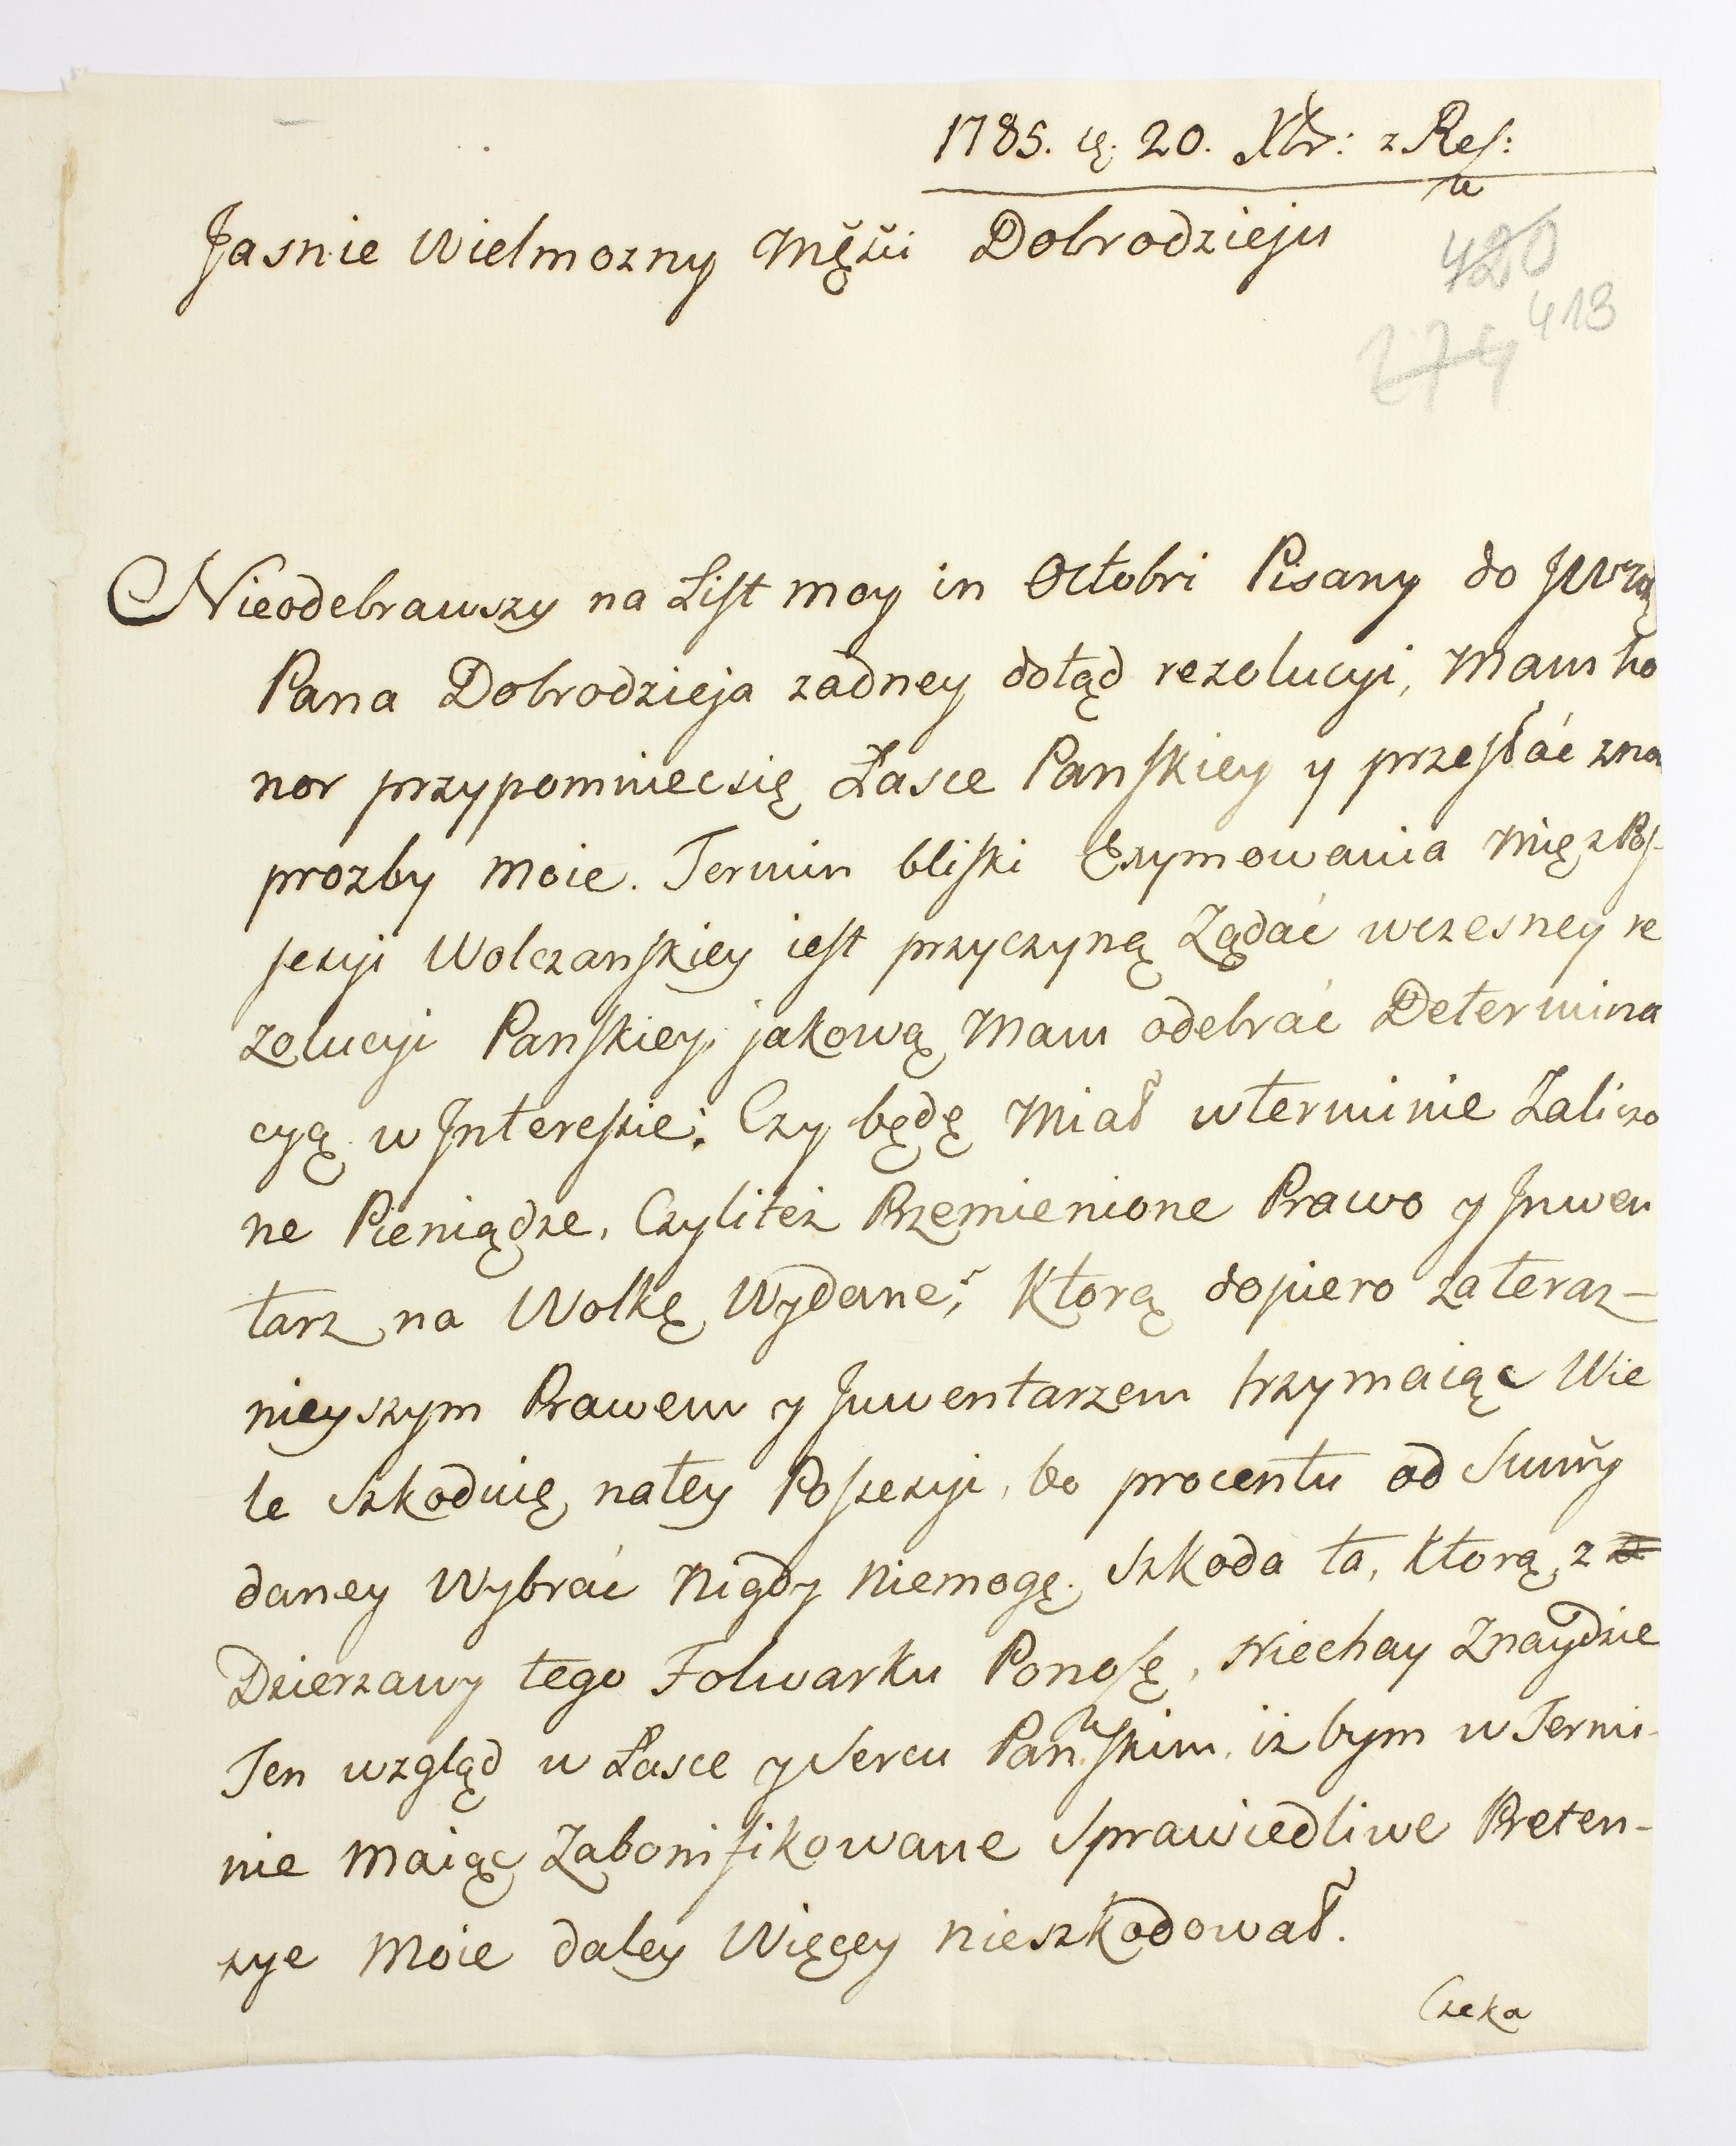 1785. 20. Xbr: z Res:
Jasnie Wielmozny Mci Dobrodzieju
420
413
274
Nieodebrawszy na List moy in Octobri Pisany do
Pana Dobrodzieja zadney dotąd rezolucyi, Mam ho
nor przypomniec się Łasce Panskiey y przesłać zna
prozby Moie. Termin bliski Exymowania Mię z Pos-
sesyi Wolczanskiey iest przyczyną Ządać wczesney re
zolucyi Panskiey, jakową Mam odebrać Determina
cyą w Interesie: Czy będę Miał w terminie Zaliczo
ne Pieniądze, Czyliteż Przemienione Prawo y Inwen
tarz na Wolkę Wydane, Ktorą dopiero za teraz-
nieyszym Prawem y Inwentarzem trzymaiąc Wie
le Szkoduię na tey Possesyi, bo procentu od Sumy
daney Wybrać Nigdy Niemogę. Szkoda ta, Ktorą z
Dzierzawy tego Folwarku Ponosę, Niechay Znaydzie
Ten wzgląd w Łasce y Sercu Panskim, iż bym w Termi-
nie Maiąc Zabonifikowane Sprawiedliwe Preten-
sye Moie daley Więcey nieszkodował.
Czeka